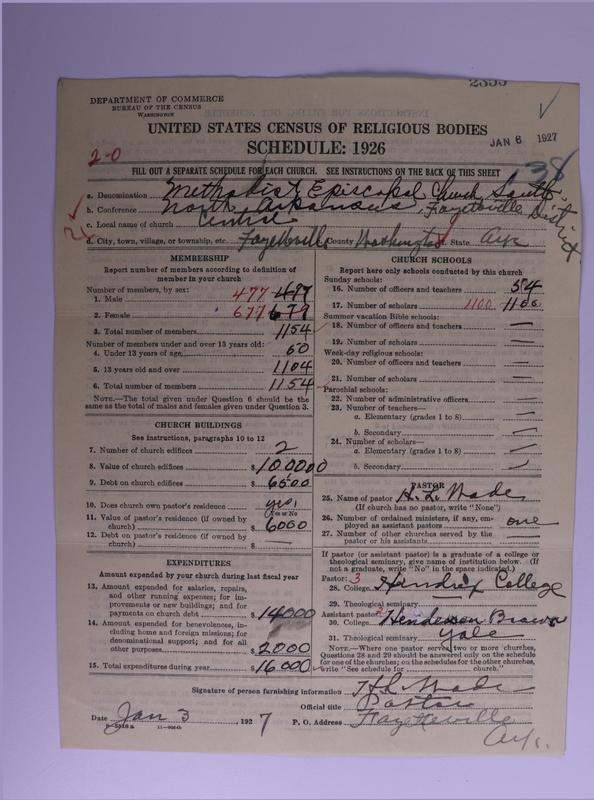 2355
DEPARTMENT OF COMMERCE
BUREAU OF THE CENSUS
WASHINGTON
UNITED STATES CENSUS OF RELIGIOUS BODIES
JAN 6 1927
SCHEDULE: 1926
2-0
38
FILL OUT A SEPARATE SCHEDULE FOR EACH CHURCH. SEE INSTRUCTIONS ON THE BACK OF THIS SHEET
a. Denomination Methodist Episcopal Church, South
b. Conference North Arkansas, Fayetteville District
c. Local name of church Central
d. City, town, village, or township, etc. Fayetteville County Washington State Ark
MEMBERSHIP
Report number of members according to definition of
member in your church
Number of members, by sex:
1. Male 477 477
2. Female 677 679
3. Total number of members 1154
Number of members under and over 13 years old:
4. Under 13 years of age 50
5. 13 years old and over 1104
6. Total number of members 1154
NOTE.—The total given under Question 6 should be the
same as the total of males and females given under Question 3.
CHURCH BUILDINGS
See instructions, paragraphs 10 to 12
7. Number of church edifices 2
8. Value of church edifices $ 100000
9. Debt on church edifices $ 6500
10. Does church own pastor's residence yes
Yes or No
11. Value of pastor's residence (if owned by
church) $ 6000
12. Debt on pastor's residence (if owned by
church) $ —
EXPENDITURES
Amount expended by your church during last fiscal year
13. Amount expended for salaries, repairs,
and other running expenses; for im-
provements or new buildings; and for
payments on church debt $ 14000
14. Amount expended for benevolences, in-
cluding home and foreign missions; for
denominational support; and for all
other purposes $ 2000
15. Total expenditures during year $ 16000
CHURCH SCHOOLS
Report here only schools conducted by this church
Sunday schools:
16. Number of officers and teachers 54
17. Number of scholars 1100 1100
Summer vacation Bible schools:
18. Number of officers and teachers —
19. Number of scholars —
Week-day religious schools:
20. Number of officers and teachers —
21. Number of scholars —
Parochial schools:
22. Number of administrative officers —
23. Number of teachers—
a. Elementary (grades 1 to 8) —
b. Secondary —
24. Number of scholars—
a. Elementary (grades 1 to 8) —
b. Secondary —
PASTOR
25. Name of pastor H. L. Wade
(If church has no pastor, write "None")
26. Number of ordained ministers, if any, em-
ployed as assistant pastors one
27. Number of other churches served by the
pastor or his assistants —
If pastor (or assistant pastor) is a graduate of a college or
theological seminary, give name of institution below. (If
not a graduate, write "No" in the space indicated.)
Pastor: 3
28. College Hendrix College
29. Theological seminary
Assistant pastor:
30. College Henderson Brown
31. Theological seminary Yale
NOTE.—Where one pastor serves two or more churches,
Questions 28 and 29 should be answered only on the schedule
for one of the churches; on the schedules for the other churches,
write "See schedule for church."
Signature of person furnishing information H L Wade
Official title Pastor
Date Jan 3, 1927 P. O. Address Fayetteville
Ark.